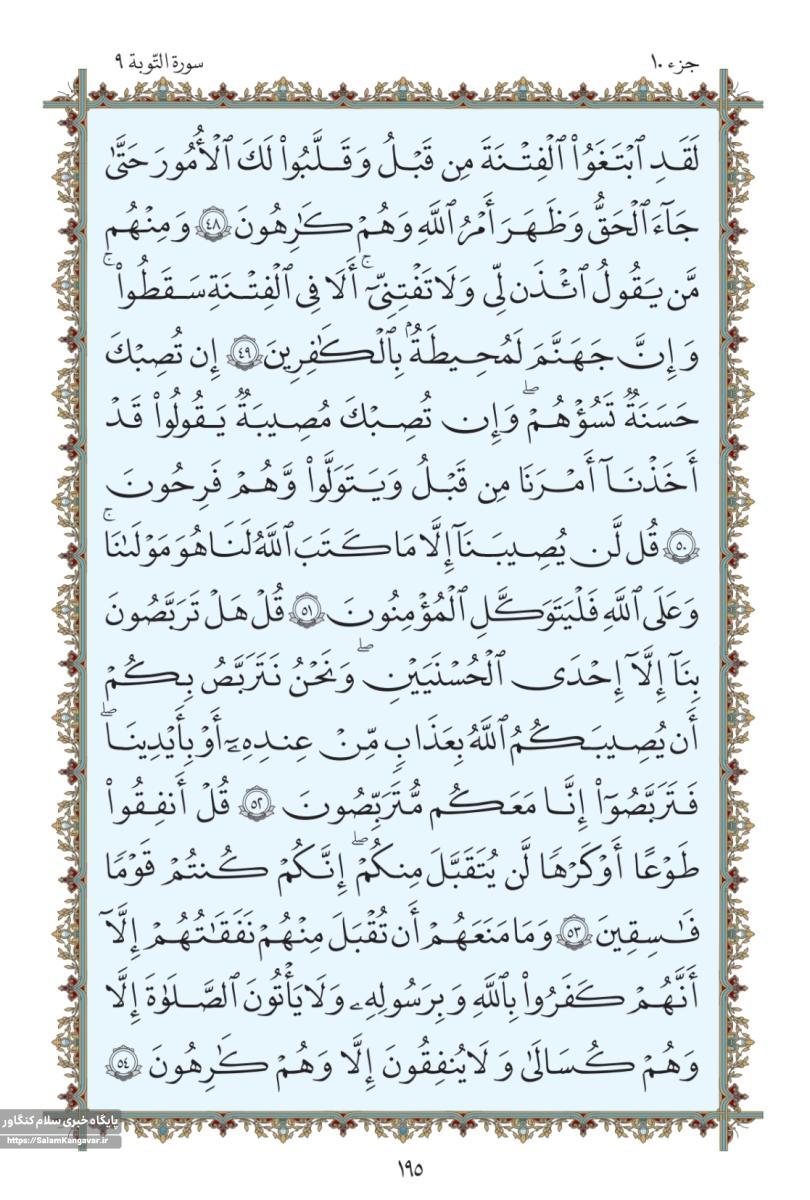 جزء ١٠
سورة التّوبة ٩
لَقَدِ ٱبْتَغَوُا۟ ٱلْفِتْنَةَ مِن قَبْلُ وَقَلَّبُوا۟ لَكَ ٱلْأُمُورَ حَتَّىٰ
جَآءَ ٱلْحَقُّ وَظَهَرَ أَمْرُ ٱللَّهِ وَهُمْ كَـٰرِهُونَ ٤٨ وَمِنْهُم
مَّن يَقُولُ ٱئْذَن لِّى وَلَا تَفْتِنِّىٓ ۚ أَلَا فِى ٱلْفِتْنَةِ سَقَطُوا۟ ۗ
وَإِنَّ جَهَنَّمَ لَمُحِيطَةٌۢ بِٱلْكَـٰفِرِينَ ٤٩ إِن تُصِبْكَ
حَسَنَةٌ تَسُؤْهُمْ ۖ وَإِن تُصِبْكَ مُصِيبَةٌ يَقُولُوا۟ قَدْ
أَخَذْنَآ أَمْرَنَا مِن قَبْلُ وَيَتَوَلَّوا۟ وَّهُمْ فَرِحُونَ
٥٠ قُل لَّن يُصِيبَنَآ إِلَّا مَا كَتَبَ ٱللَّهُ لَنَا هُوَ مَوْلَىٰنَا ۚ
وَعَلَى ٱللَّهِ فَلْيَتَوَكَّلِ ٱلْمُؤْمِنُونَ ٥١ قُلْ هَلْ تَرَبَّصُونَ
بِنَآ إِلَّآ إِحْدَى ٱلْحُسْنَيَيْنِ ۖ وَنَحْنُ نَتَرَبَّصُ بِكُمْ
أَن يُصِيبَكُمُ ٱللَّهُ بِعَذَابٍ مِّنْ عِندِهِۦٓ أَوْ بِأَيْدِينَا ۖ
فَتَرَبَّصُوٓا۟ إِنَّا مَعَكُم مُّتَرَبِّصُونَ ٥٢ قُلْ أَنفِقُوا۟
طَوْعًا أَوْ كَرْهًا لَّن يُتَقَبَّلَ مِنكُمْ ۖ إِنَّكُمْ كُنتُمْ قَوْمًا
فَـٰسِقِينَ ٥٣ وَمَا مَنَعَهُمْ أَن تُقْبَلَ مِنْهُمْ نَفَقَـٰتُهُمْ إِلَّآ
أَنَّهُمْ كَفَرُوا۟ بِٱللَّهِ وَبِرَسُولِهِۦ وَلَا يَأْتُونَ ٱلصَّلَوٰةَ إِلَّا
وَهُمْ كُسَالَىٰ وَلَا يُنفِقُونَ إِلَّا وَهُمْ كَـٰرِهُونَ ٥٤
پایگاه خبری سلام کنگاور
https://SalamKangavar.ir
١٩٥